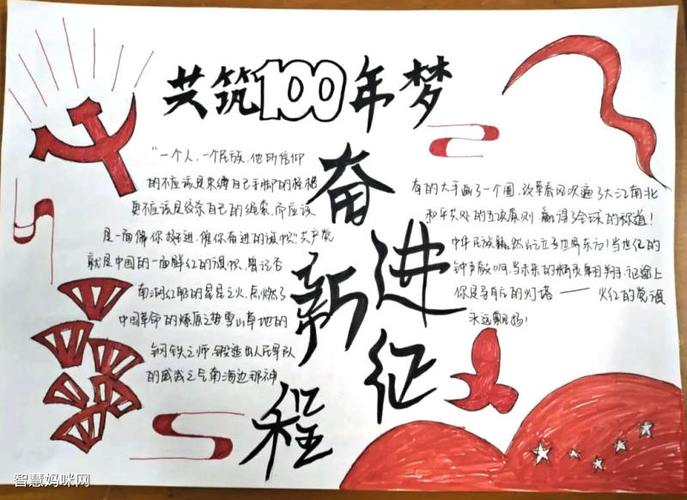 共筑100年梦
奋
进
新
征
程
"一个人、一个民族、他所信仰
的不应该是束缚自己手脚的桎梏
更不应该是绞杀自己的绳索,而应该
是一面催你好进、催你奋进的旗帜"共产党
就是中国的一面鲜红的旗帜,曾记否
南湖红船的星星之火,点燃了
中国革命的燎原之势,雪山草地的
钢铁之师,锻造出人民军队
的威武之气南海边那神
有的大手画了一个圈,改革春风吹遍了大江南北
和平共处的五项原则 赢得全球的称道!
中华民族巍然屹立于世界东方!当世纪的
钟声敲响,当未来的翱翔
你是导航的灯塔——火红的党旗
永远飘扬!
智慧妈咪网